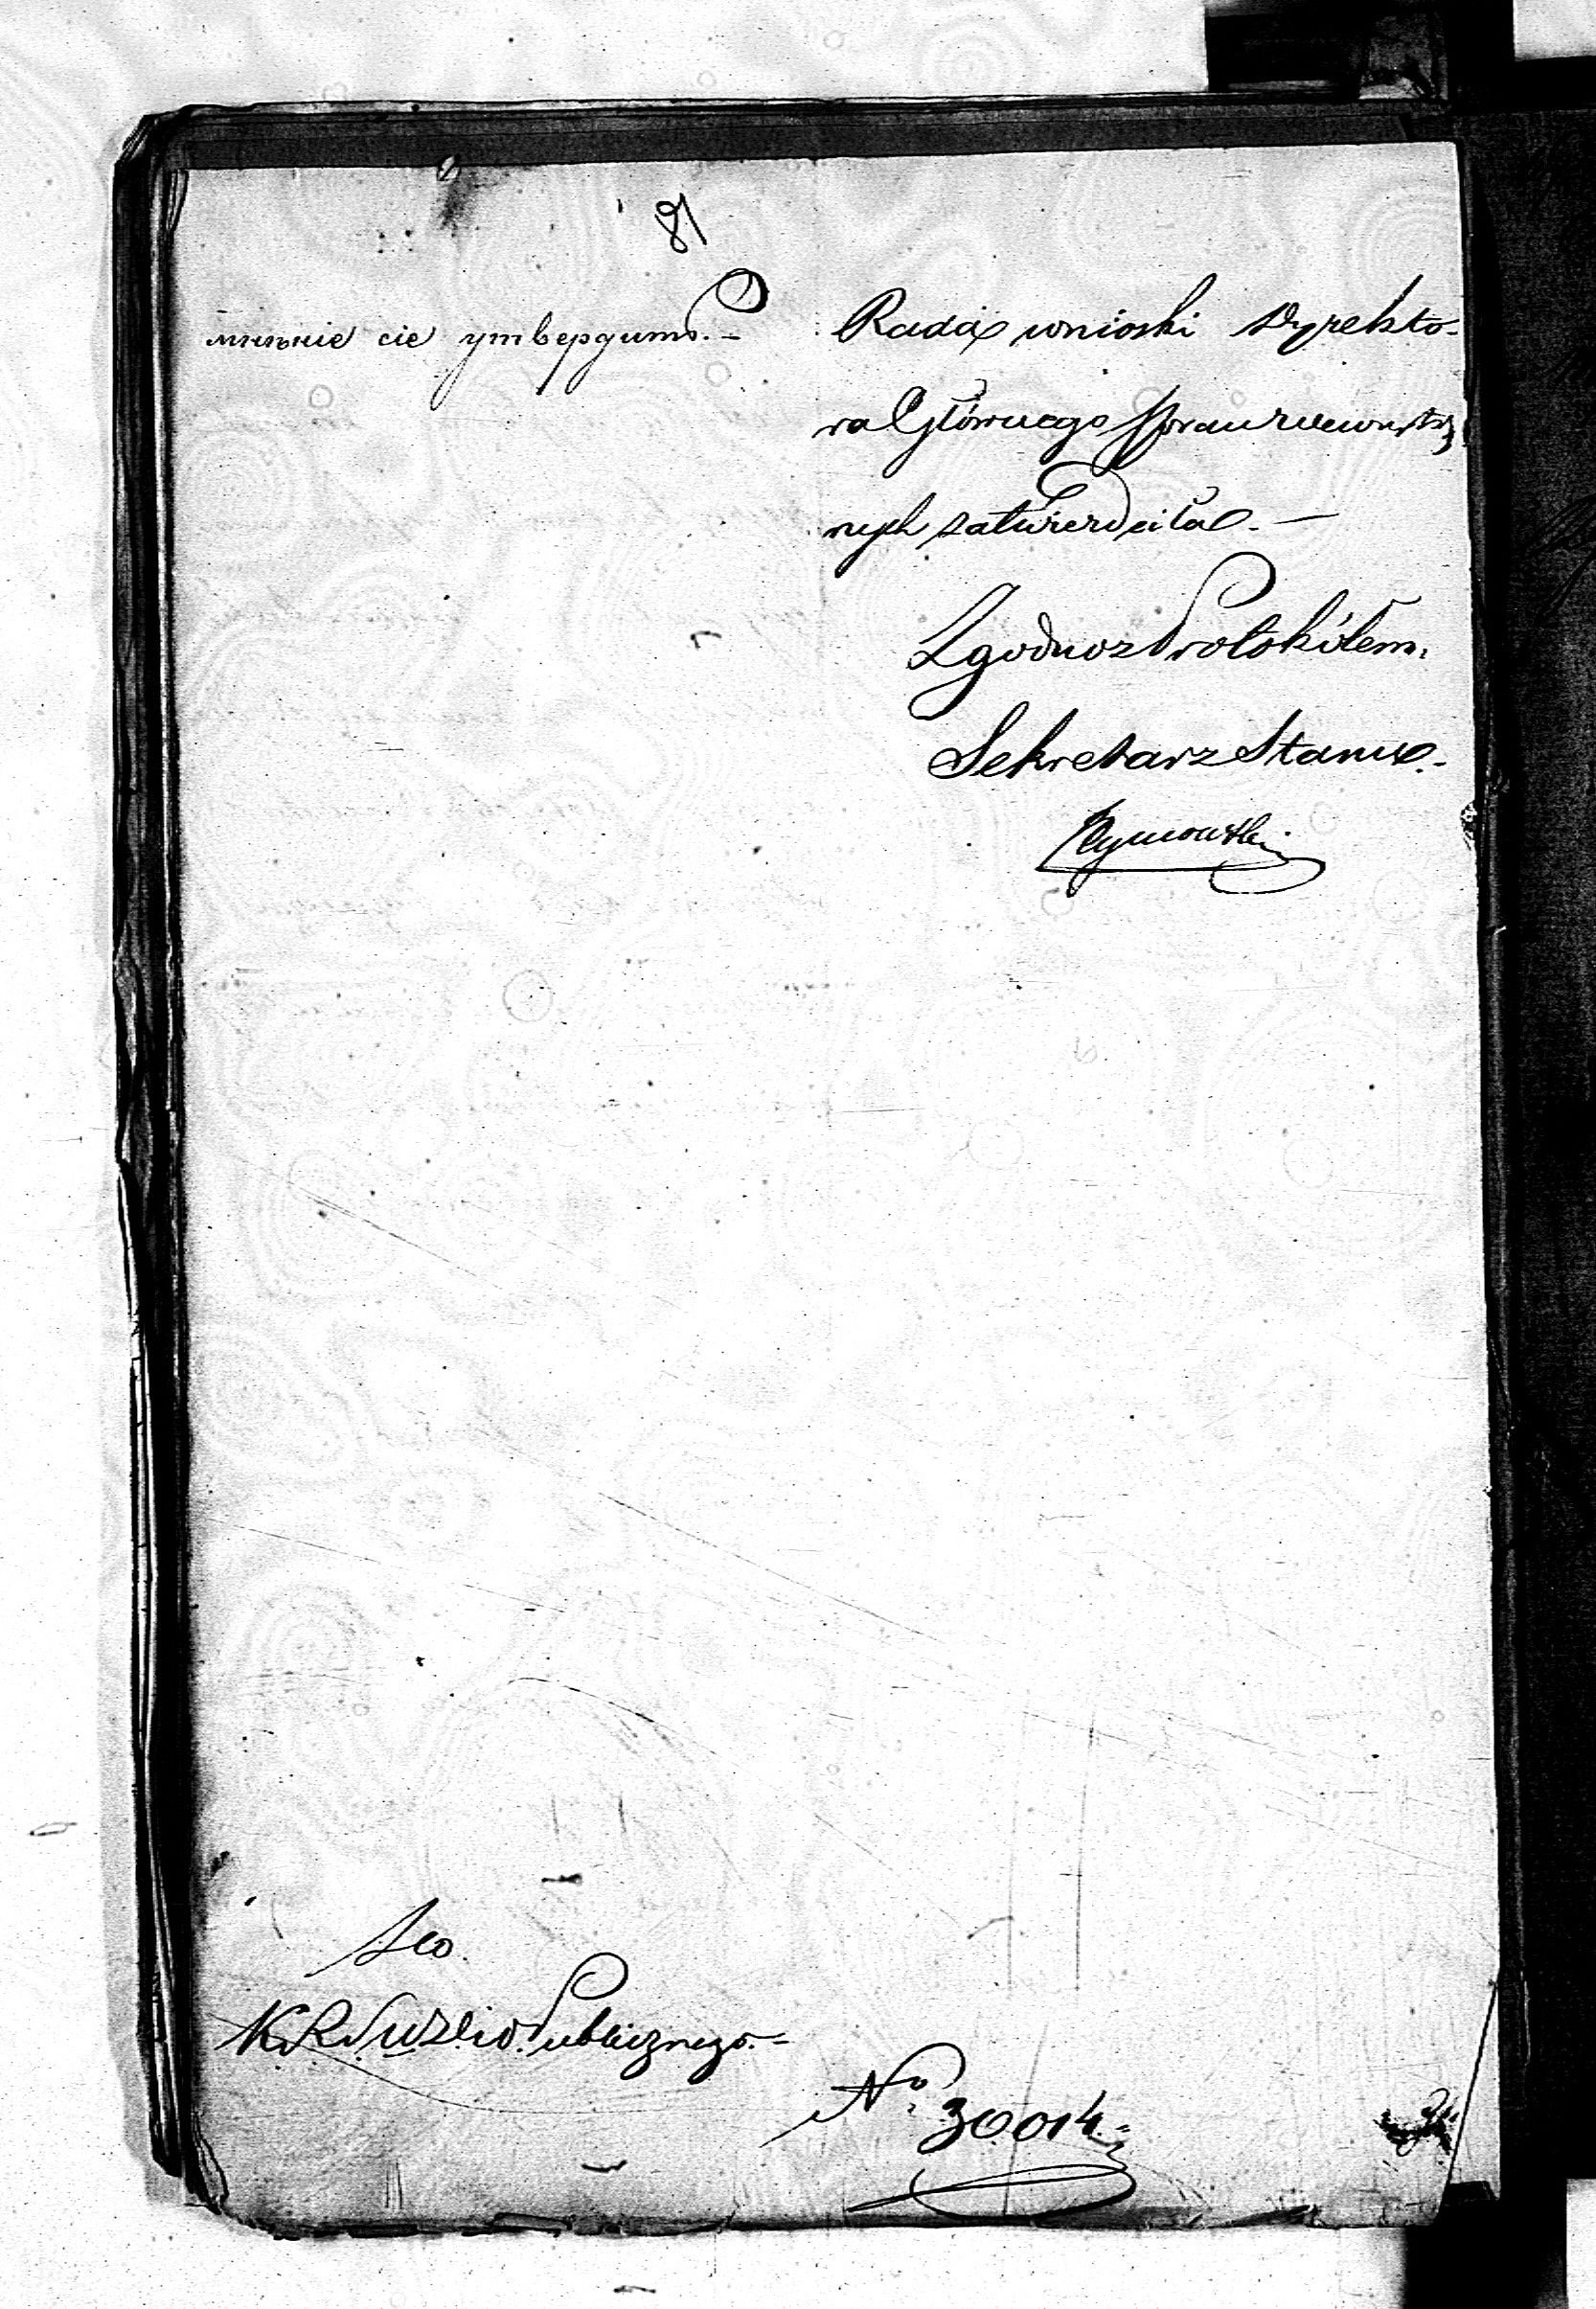 81
мнѣніе сіе утвердить.-
Rada wnioski Dyrekto-
ra Głównego Spraw Wewnętrz
nych zatwierdziła. —
Zgodno z Protokółem.
Sekretarz Stanu.-
Tymowski
Do
K.R.S.W.D. i O. Publicznego.=
No. 30014.=